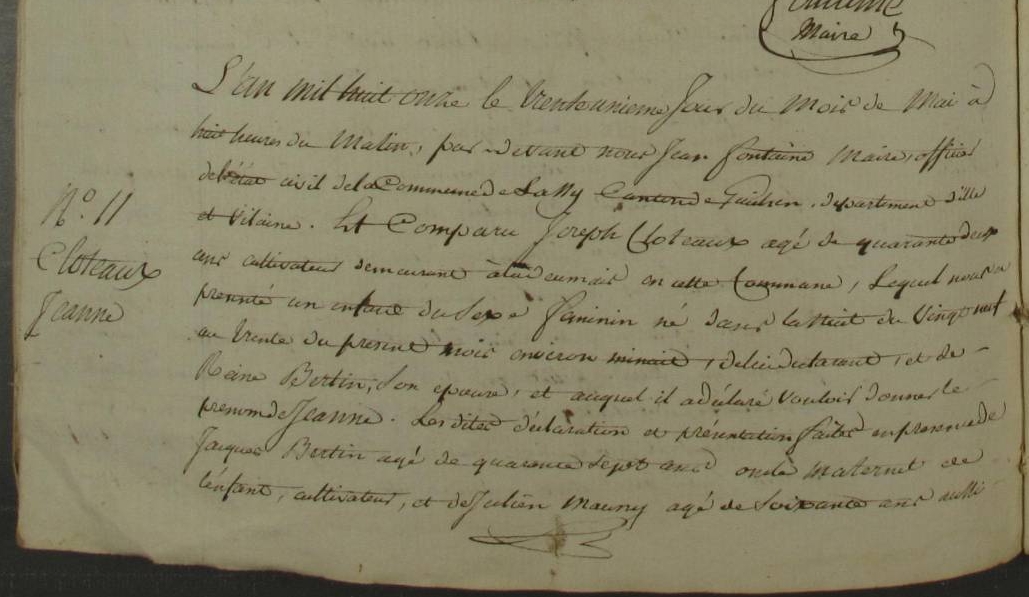 Maire
L'an mil huit onze le trente unieme Jour du Mois de Mai à
huit heures du Matin, par devant nous Jean fontaine Maire, officier
de l'état civil de la Commune de Lassy Canton de Guichen, département d'ille
et Vilaine. Est Comparu Joseph Cloteaux agé de quarante deux
ans cultivateur demeurant en cette Commune, Lequel nous a
presenté un enfant du Sexe féminin né dans la Nuit du Vingt neuf
au trente du present mois environ minuit, de lui déclarant, et de
Reine Bertin, Son epouse, et auquel il a déclaré vouloir donner le
prenom de Jeanne. Les dites déclaration et présentation faites en presence de
Jacques Bertin agé de quarante Sept ans oncle Maternel de
l'enfant, cultivateur, et de Julien Mauny agé de Soixante ans aussi
N.º 11
Cloteaux
Jeanne